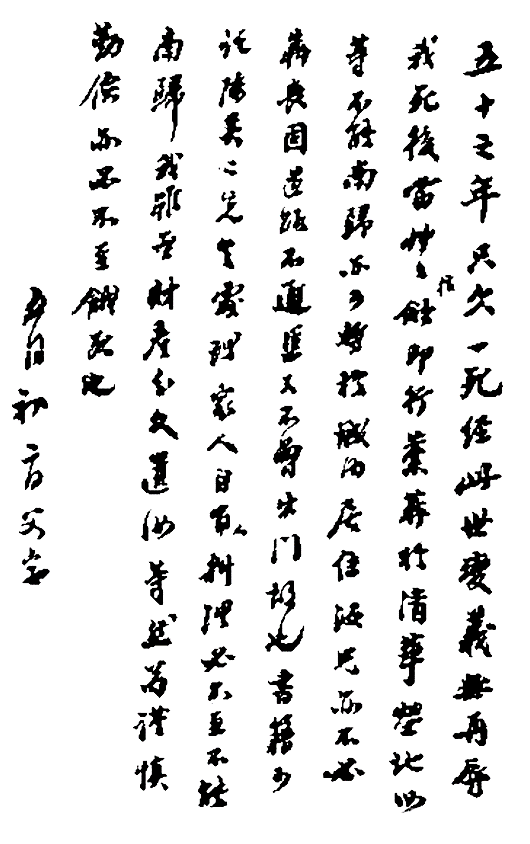 五十之年只欠一死經此世變義無再辱
我死後當艸艸棺斂即行藁葬於清華塋地汝
等不能南歸亦可暫於城内居住汝兄亦不必
奔喪因道路不通渠又不曾出門故也書籍可
託陳吳二先生處理家人自有人料理必不至不能
南歸我雖無財產分文遺汝等然苟謹慎
勤儉亦必不至餓死也
五月初二日父字